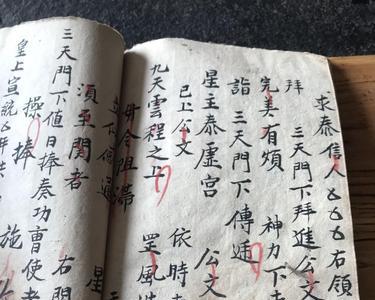 求泰信人厶厶厶右領
拜　三天門下拜進公文
完美有煩　神力下
詣　三天門下傳逓
星主泰虛宮　公文
已上公文　依時
九天雲程之上　罡風
毋令阻滯
須至関者　星
三天門下值日捧奏功曹使者
操捧　右関
皇上宣統　施